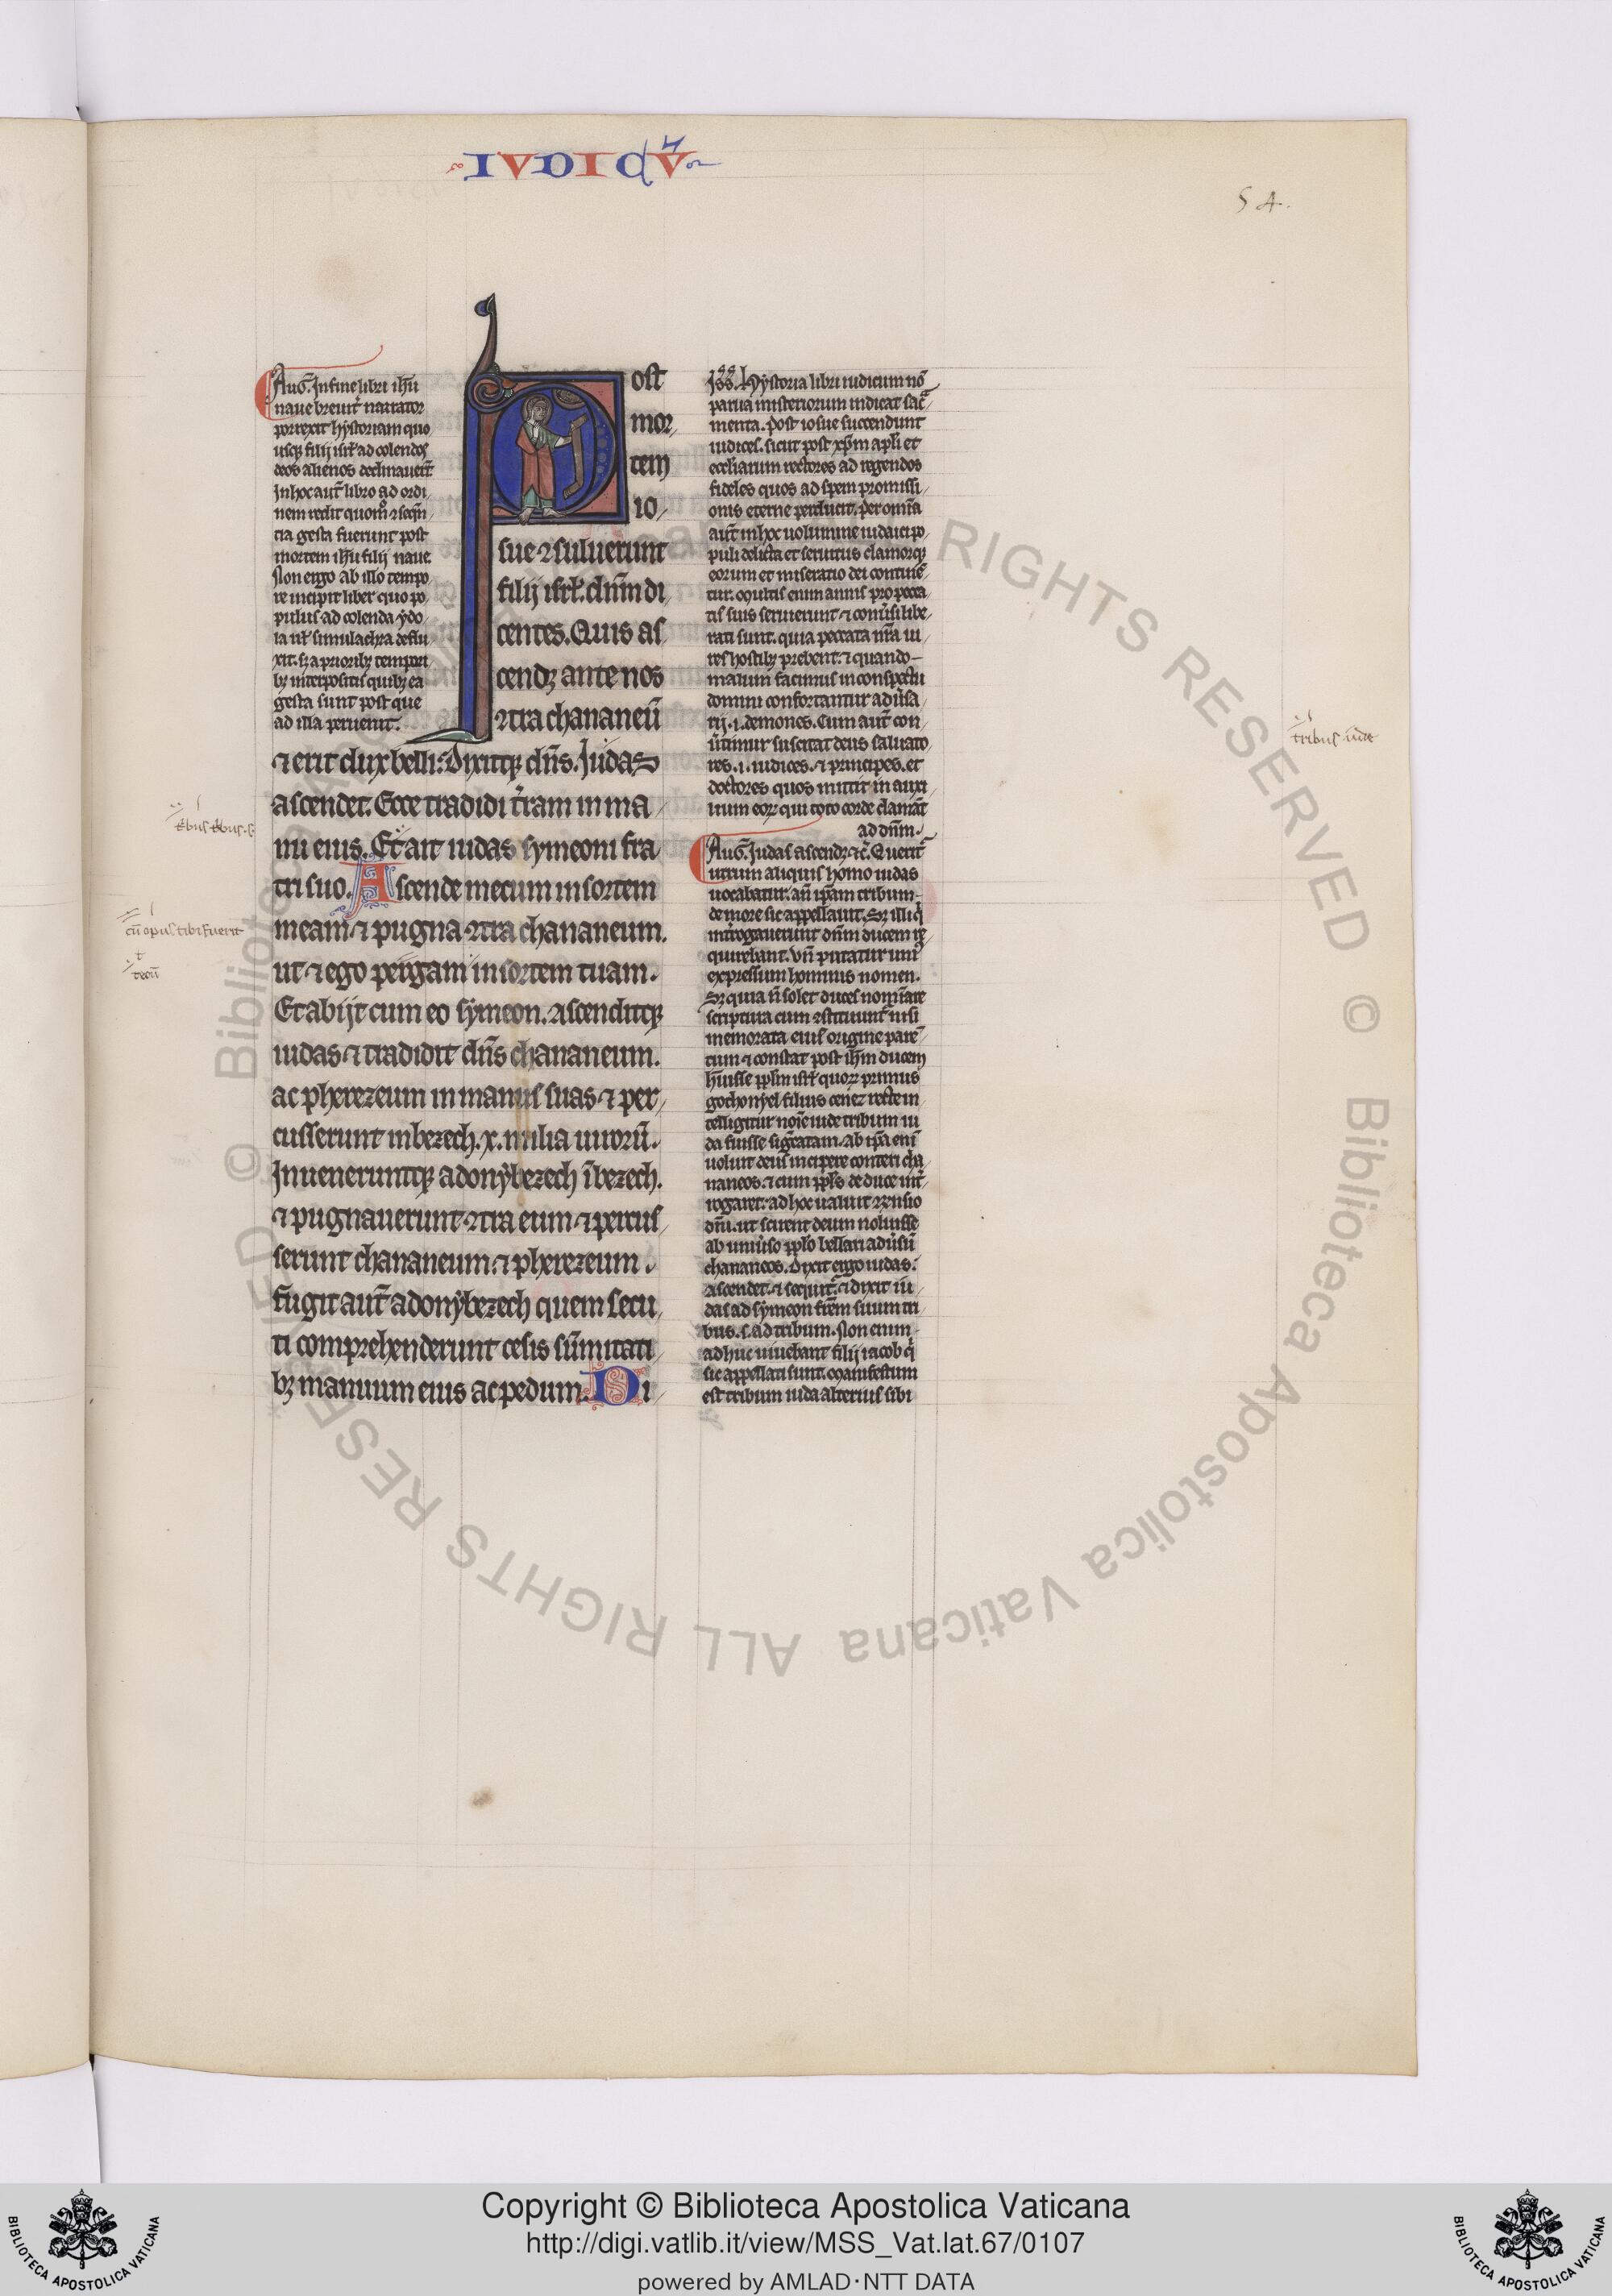 IVDICVꝝ
54.
Aug̅. In fine libri ih̅u
naue breuit̅ narrator
porrexit hystoriam quo
usqꝫ filij isrł ad colendos
deos alienos declinauer̅t
In hoc aut̅ libro ad ordi
nem redit quom̊ ꝯseq̅n
tia gesta fuerunt post
mortem ih̅u filij naue.
Non ergo ab illo tempo
re incipit liber quo po
pulus ad colenda ydo
la uł simulachra deflu
xit. sꝫ a prioribꝫ tempori
bꝫ interpositis quibꝫ ea
gesta sunt post que
ad illa peruenit.
Post
mor
tem
io
sue ꝯsuluerunt
filij isrł. dn̅m di
centes. Quis as
cendꝫ ante nos
ꝯtra chananeu̅
⁊ erit dux belli: Dixitqꝫ dn̅s. Judas
ascendet. Ecce tradidi t̅ram in ma
nu eius. Et ait iudas symeoni fra
tri suo. Ascende mecum in sortem
meam ⁊ pugna ꝯtra chananeum.
ut ⁊ ego pergam in sortem tuam.
Et abijt cum eo symeon. ascenditqꝫ
iudas ⁊ tradidit dn̅s chananeum.
ac pherezeum in manus suas ⁊ per
cusserunt in bezech. x. milia uiroru̅.
Inueneruntqꝫ adonybezech i̅ bezech.
⁊ pugnauerunt ꝯtra eum ⁊ percus
serunt chananeum ⁊ pherezeum.
Fugit aut̅ adonybezech quem secu
ti comprehenderunt cesis su̅mitati
bꝫ manuum eius ac pedum. Di
Hystoria libri iudicum no̅
parua misteriorum indicat sac̅
menta. post iosue succendunt
iudices. sicut post xp̅m apl̅i et
eccl̅iarum rectores ad regendos
fideles quos ad spem promissi
onis eterne perducit. Per omn̅ia
aut̅ in hoc uolumine iudaici po
puli delicta et seruitus clamorqꝫ
eorum et miseratio dei contine̅
tur. Multis enim annis pro pecca
tis suis seruierunt ⁊ conu̅si libe
rati sunt. quia peccata nr̅a ui
res hostibꝫ prebent. ⁊ quando
malum facimus in conspectu
domini confortantur adu̅sa
rij .i. demones. Cum aut̅ con
u̅timur suscitat deus saluato
res .i. iudices. ⁊ principes. et
doctores quos mittit in auxi
lium eoꝝ qui toto corde clama̅t
ad dn̅m.
Aug̅. Judas ascendꝫ ⁊c̅. Querit̅
utrum aliquis homo iudas
uocabatur. an̅ ip̅am tribum
de more sic appellauit. Sꝫ illi q̅
int̅rogauerunt dn̅m ducem re
quirebant. Vn̅ putatur uni
expressum hominis nomen.
Sꝫ quia n̅ solet duces nomi̅are
scriptura cum ꝯstituunt̅ nisi
memorata eius origine pare̅
tum ⁊ constat post ih̅m ducem
h̅uisse ppl̅m isrł quoꝝ primus
gothonyel filius cenez recte in
telligitur no̅ie iude tribum iu
da fuisse sig̅catam. Ab ip̅a eni̅
uoluit deus incipere conteri cha
naneos. ⁊ cum ppl̅s de duce int̅
rogaret: ad hoc ualuit rn̅sio
dn̅i. ut scirent deum noluisse
ab uniu̅so pplo̅ bellari adu̅su̅
chananeos. Dixit ergo iudas:
ascendet. ⁊ sequit̅. ⁊ dixit iu
das ad symeon fr̅em suum tri
bus .s. ad tribum. Non enim
adhuc uiuebant filij iacob q̅
sic appellati sunt. Manifestum
est tribum iuda alterius sibi
tribus iude
cu̅ opus tibi fuerit
tecu̅
Copyright © Biblioteca Apostolica Vaticana
http://digi.vatlib.it/view/MSS_Vat.lat.67/0107
powered by AMLAD·NTT DATA
BIBLIOTECA APOSTOLICA VATICANA
BIBLIOTECA APOSTOLICA VATICANA
© Biblioteca Apostolica Vaticana ALL RIGHTS RESERVED
© Biblioteca Apostolica Vaticana ALL RIGHTS RESERVED